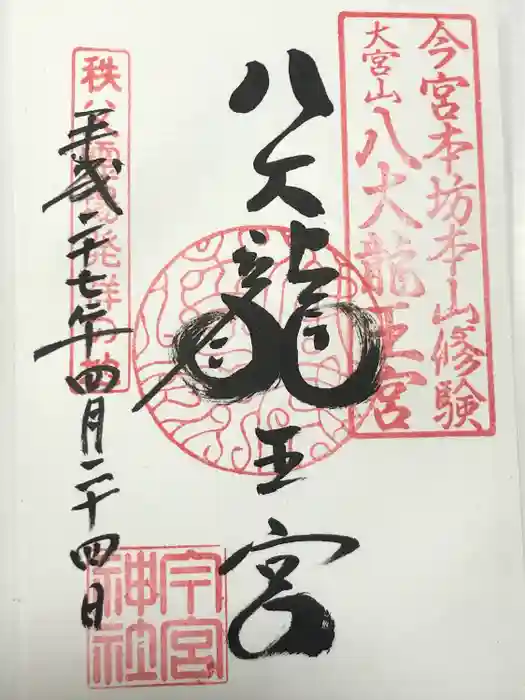 今宮本坊本山修験
大宮山
八大龍王宮
八大龍王宮
秩父霊場発祥の地
平成二十七年四月二十四日
今宮
神社